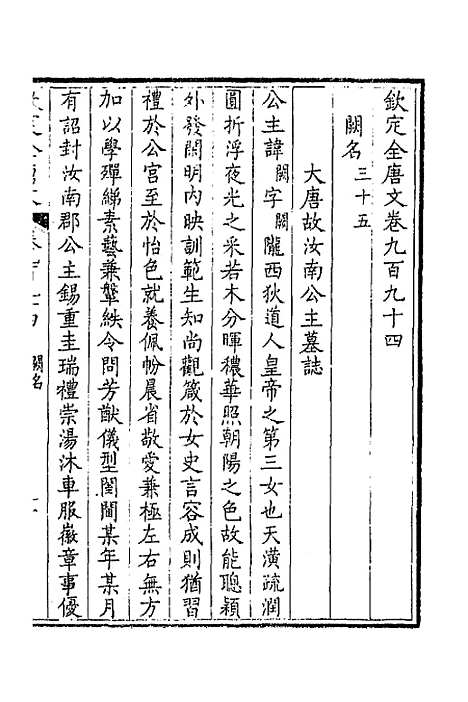 欽定全唐文卷九百九十四
闕名三十五
大唐故汝南公主墓誌
公主諱闕字闕隴西狄道人皇帝之第三女也天潢疏潤
圓折浮夜光之采若木分暉穠華照朝陽之色故能聰穎
外發閑明內映訓範生知尚觀箴於女史言容成則猶習
禮於公宮至於怡色就養佩帉晨省敬愛兼極左右無方
加以學殫綈素藝兼鞶紩令問芳猷儀型閨閫某年某月
有詔封汝南郡公主錫重圭瑞禮崇湯沐車服徽章事優
闕名